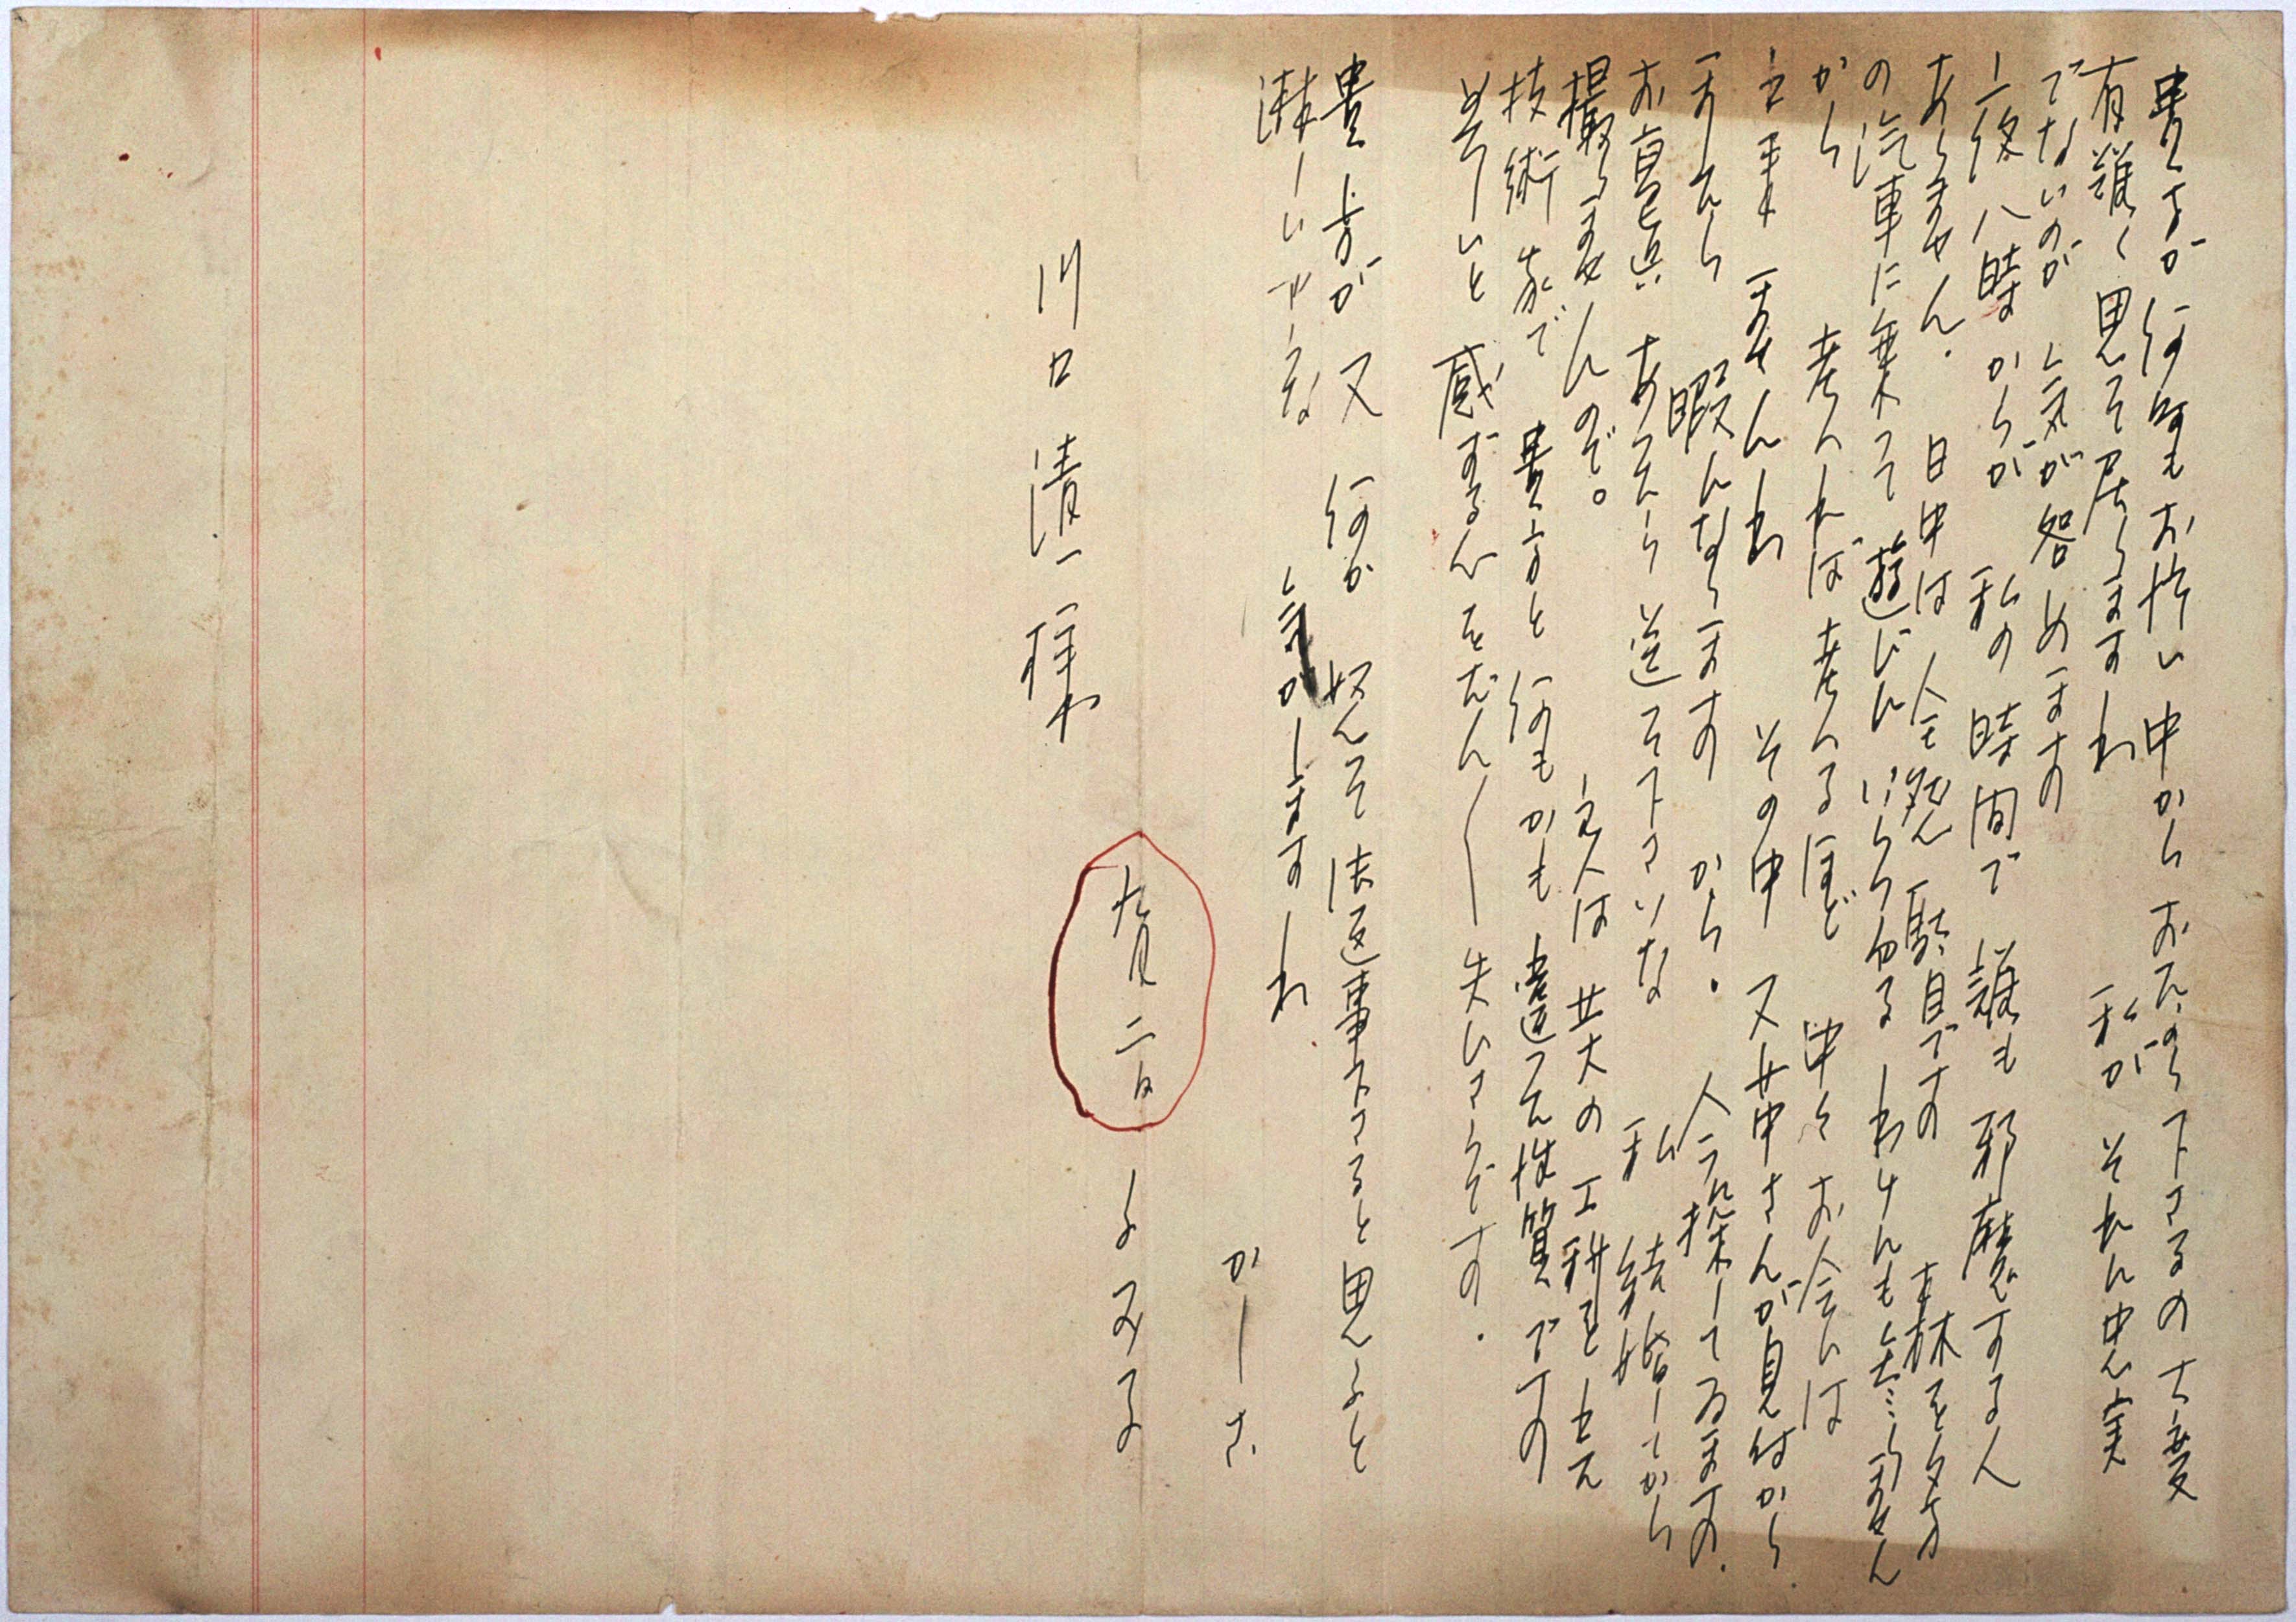 貴方が何時もお忙い中からおたより下さるの大変
有難く思って居りますわ 私がそれに忠実
でないのが 気が咎めます
夜八時からが 私の時間で 誰も邪魔する人
ありません. 日中は 全然駄目です 森を夕方
の汽車に乗って 遊びに いらっしゃる わけにも参りません
から 考へれば考へるほど 中々お会いは
出来ませんわ その中 又女中さんが見付かり
ましたら 暇になります から. 今探してゐます.
お寫真 あったら 送って下さいな 私 結婚してから
撮りませんのぞ。 主人は 北大の工科を出た
技術家で 貴方と何もかも 違った性質です
若しいと 感ずる心をだん〱失いさうです.
貴方が又 何か 怒って 御返事下さると思ふと
淋しいやうな 気がしますわ
かしこ
九月二日 よみ子
川口清一様